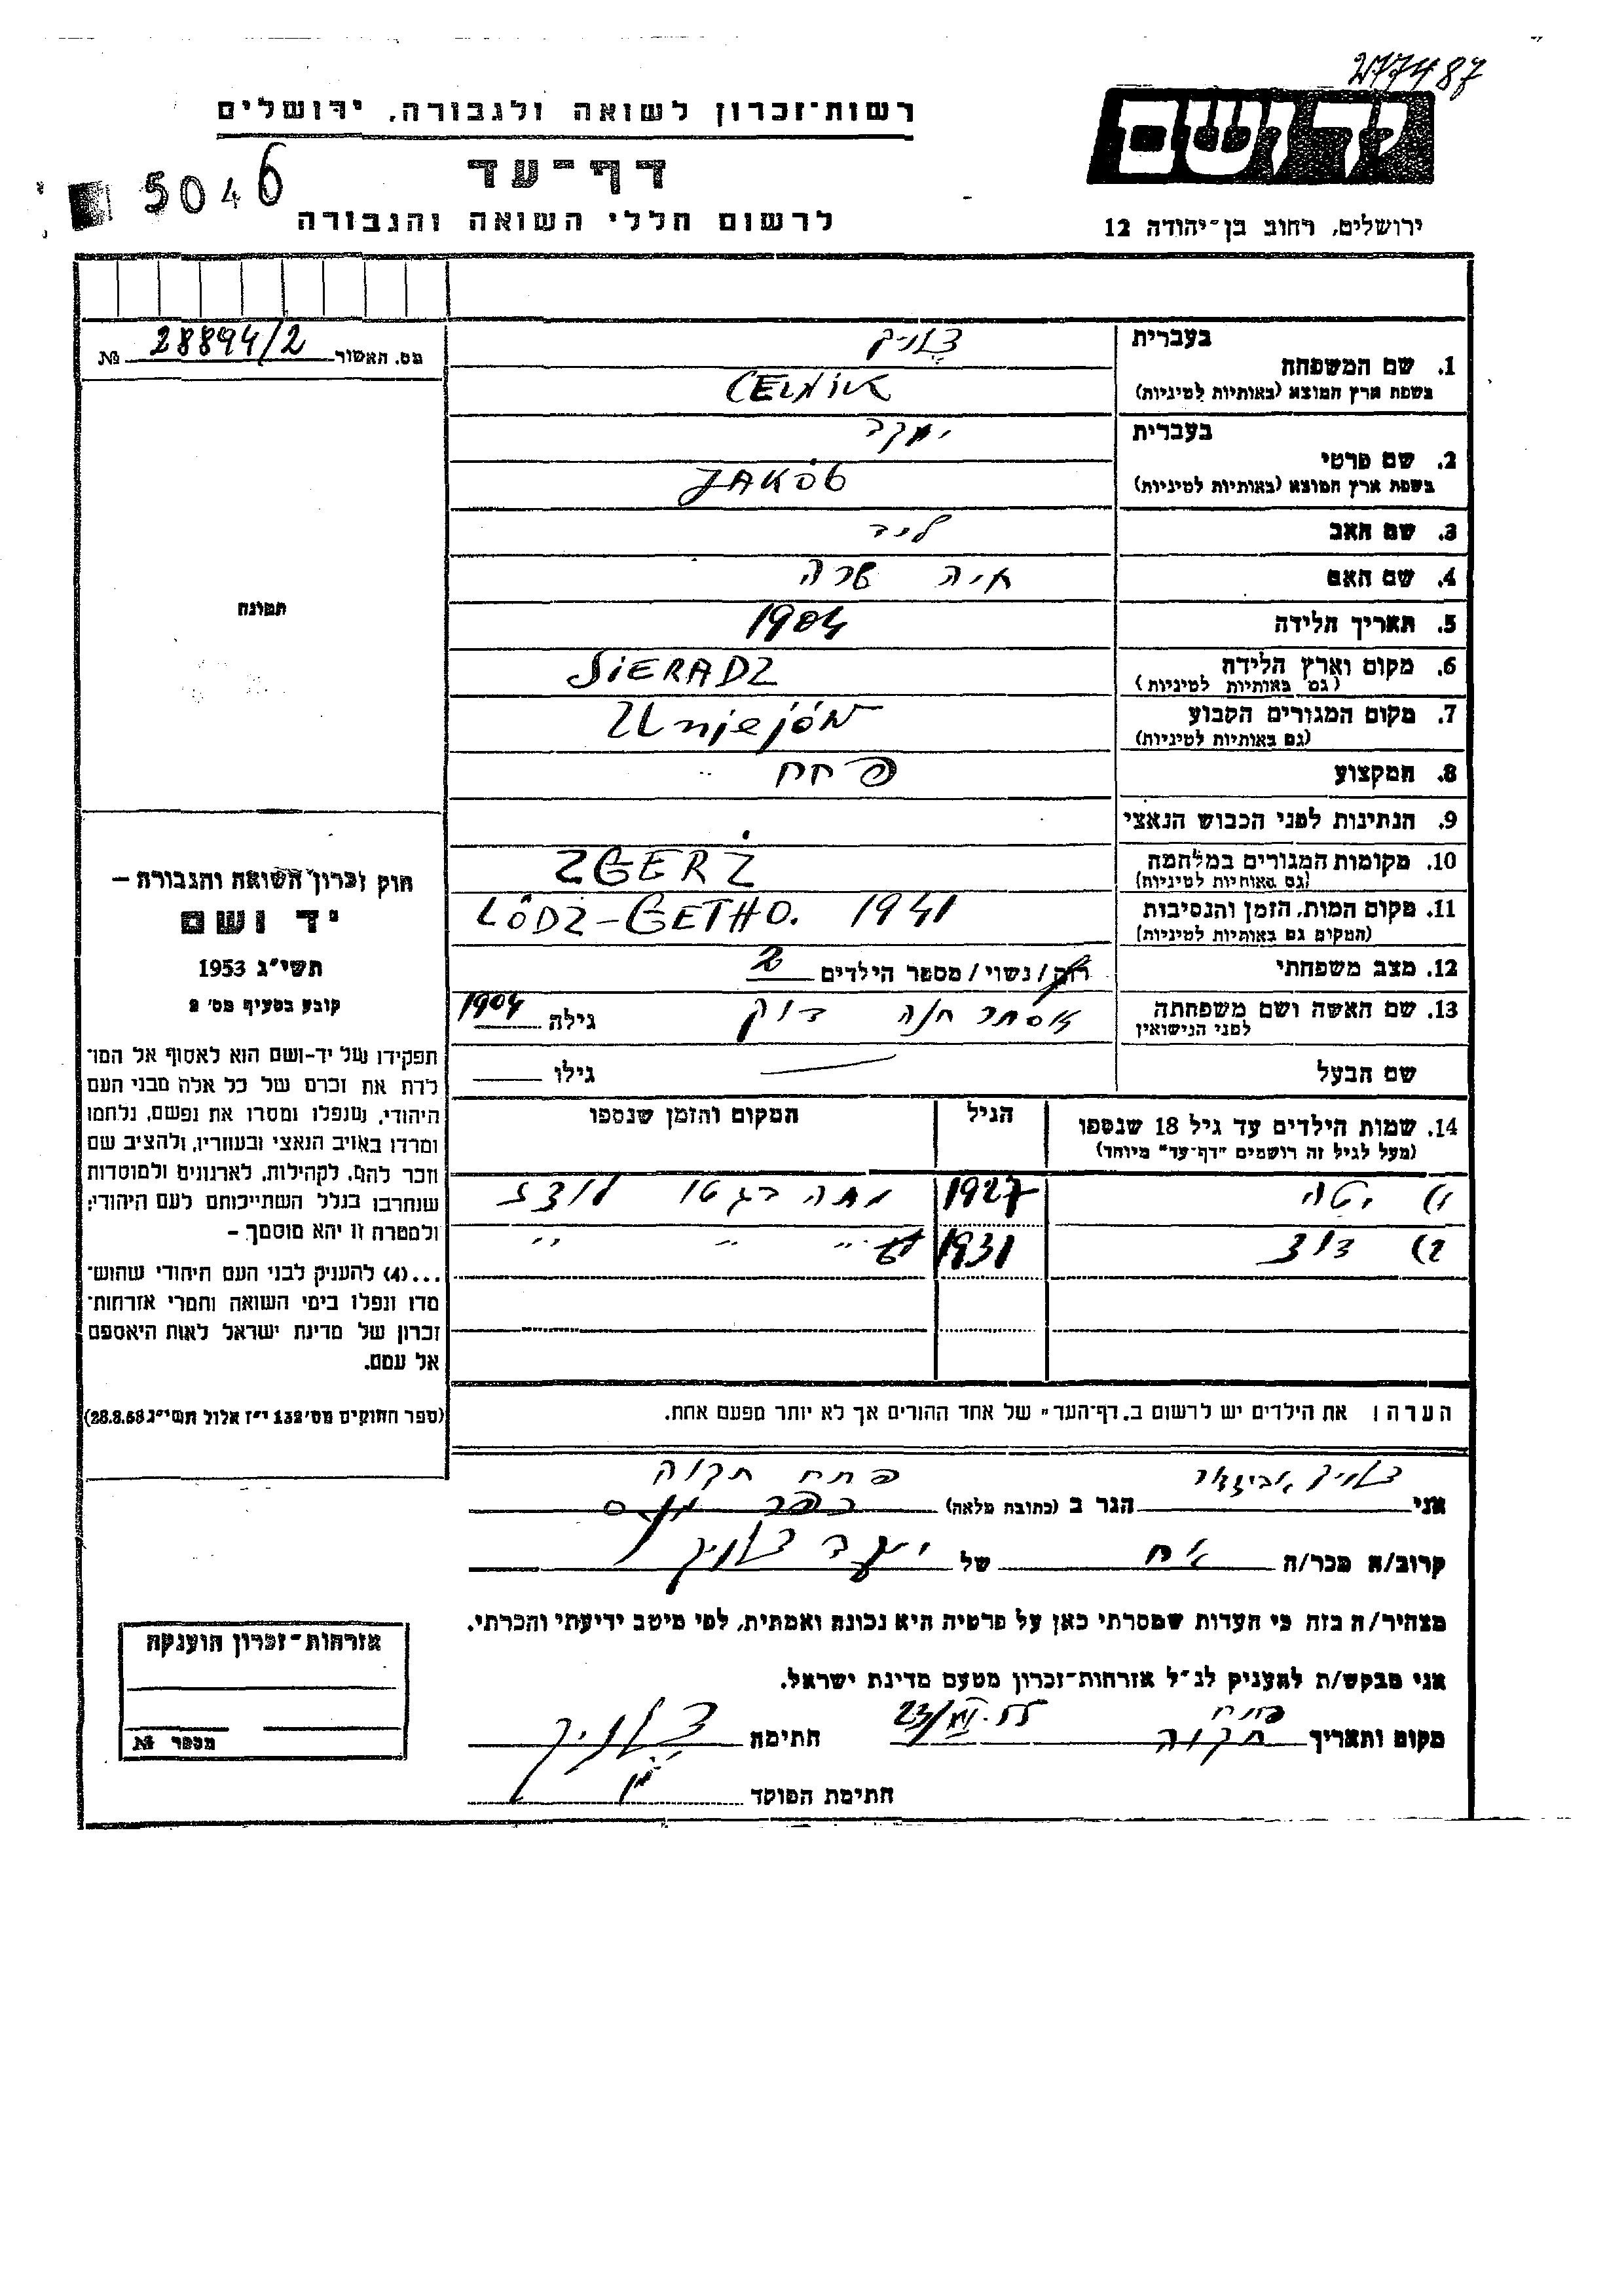 277487
רשות־זכרון לשואה ולגבורה, ירושלים
יד ושם
דף־עד
5046
לרשום חללי השואה והגבורה
ירושלים, רחוב בן־יהודה 12
מס. תאשור 28894/2 №
בעברית צלניק
1. שם המשפחה
בשפת ארץ המוצא (באותיות לטיניות) CELNIK
בעברית יעקב
2. שם פרטי
בשפת ארץ המוצא (באותיות לטיניות) JAKÓB
3. שם האב
4. שם האם חיה שרה
5. תאריך הלידה 1904
6. מקום וארץ הלידה SIERADZ
(גם באותיות לטיניות)
7. מקום המגורים הקבוע Unjejów
(גם באותיות לטיניות)
8. המקצוע פחח
9. הנתינות לפני הכבוש הנאצי
10. מקומות המגורים במלחמה ZGERŻ
(גם באותיות לטיניות)
11. מקום המות, הזמן והנסיבות LÓDZ-GETHO. 1941
(המקום גם באותיות לטיניות)
12. מצב משפחתי רוק/נשוי/מספר הילדים 2
13. שם האשה ושם משפחתה אסתר חנה גילה 1904
לפני הנישואין
שם הבעל גילו
14. שמות הילדים עד גיל 18 שנספו הגיל המקום והזמן שנספו
(מעל לגיל זה רושמים "דף־עד" מיוחד)
1) 1927 מתה בגטו לודז
2) 1931 " " "
הערה: את הילדים יש לרשום ב"דף־העד" של אחד ההורים אך לא יותר מפעם אחת.
תמונה
חוק זכרון השואה והגבורה —
יד ושם
תשי"ג 1953
קובע בסעיף מס' 2
תפקידו של יד-ושם הוא לאסוף אל המו־
לדת את זכרם של כל אלה מבני העם
היהודי, שנפלו ומסרו את נפשם, נלחמו
ומרדו באויב הנאצי ובעוזריו, ולהציב שם
וזכר להם, לקהילות, לארגונים ולמוסדות
שנחרבו בגלל השתייכותם לעם היהודי;
ולמטרה זו יהא מוסמך –
...(4) להעניק לבני העם היהודי שהוש־
מדו ונפלו בימי השואה והמרי אזרחות־
זכרון של מדינת ישראל לאות היאספם
אל עמם.
(ספר החוקים מס' 132 י"ז אלול תשי"ג 28.8.53)
פתח תקוה
אני צלניק הגר ב (כתובת מלאה) כפר
קרוב/ה מכר/ה אח של יעקב צלניק
מצהיר/ה בזה כי העדות שמסרתי כאן על פרטיה היא נכונה ואמתית, לפי מיטב ידיעתי והכרתי.
אני מבקש/ת להעניק לנ"ל אזרחות־זכרון מטעם מדינת ישראל.
מקום ותאריך פתח תקוה חתימה צלניק
חתימת הפוקד
אזרחות־זכרון הוענקה
מספר №